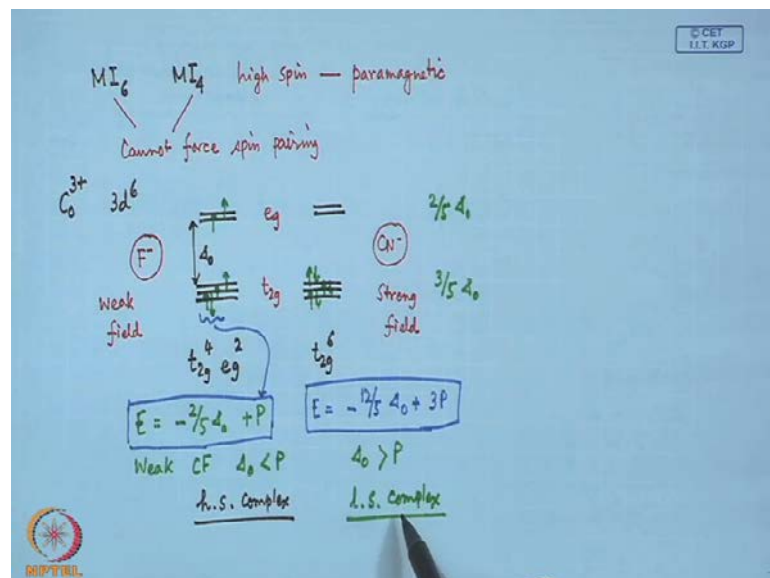 © CET
I.I.T. KGP
MI6 MI4 high spin — paramagnetic
Cannot force spin pairing
Co3+ 3d6
eg 2/5 Δ0
F- Δ0 CN-
t2g 3/5 Δ0
Weak field Strong field
t2g4 eg2 t2g6
E = -2/5 Δ0 + P E = -12/5 Δ0 + 3P
Weak CF Δ0 < P Δ0 > P
h.s. complex l.s. complex
NPTEL